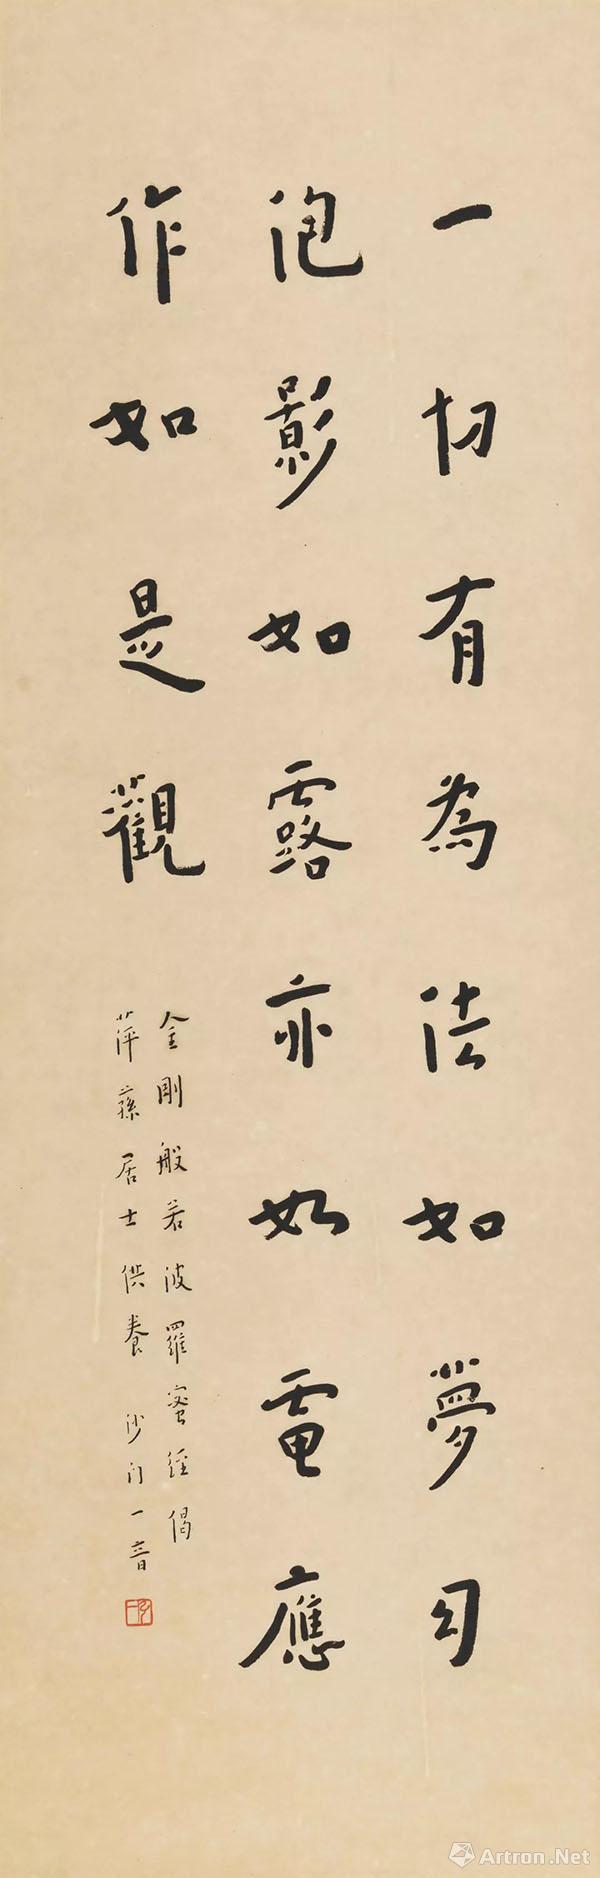 一切有為法如夢幻
泡影如露亦如電應
作如是觀
金剛般若波羅蜜經偈
萍蓀居士供養 沙門一音
Artron.Net